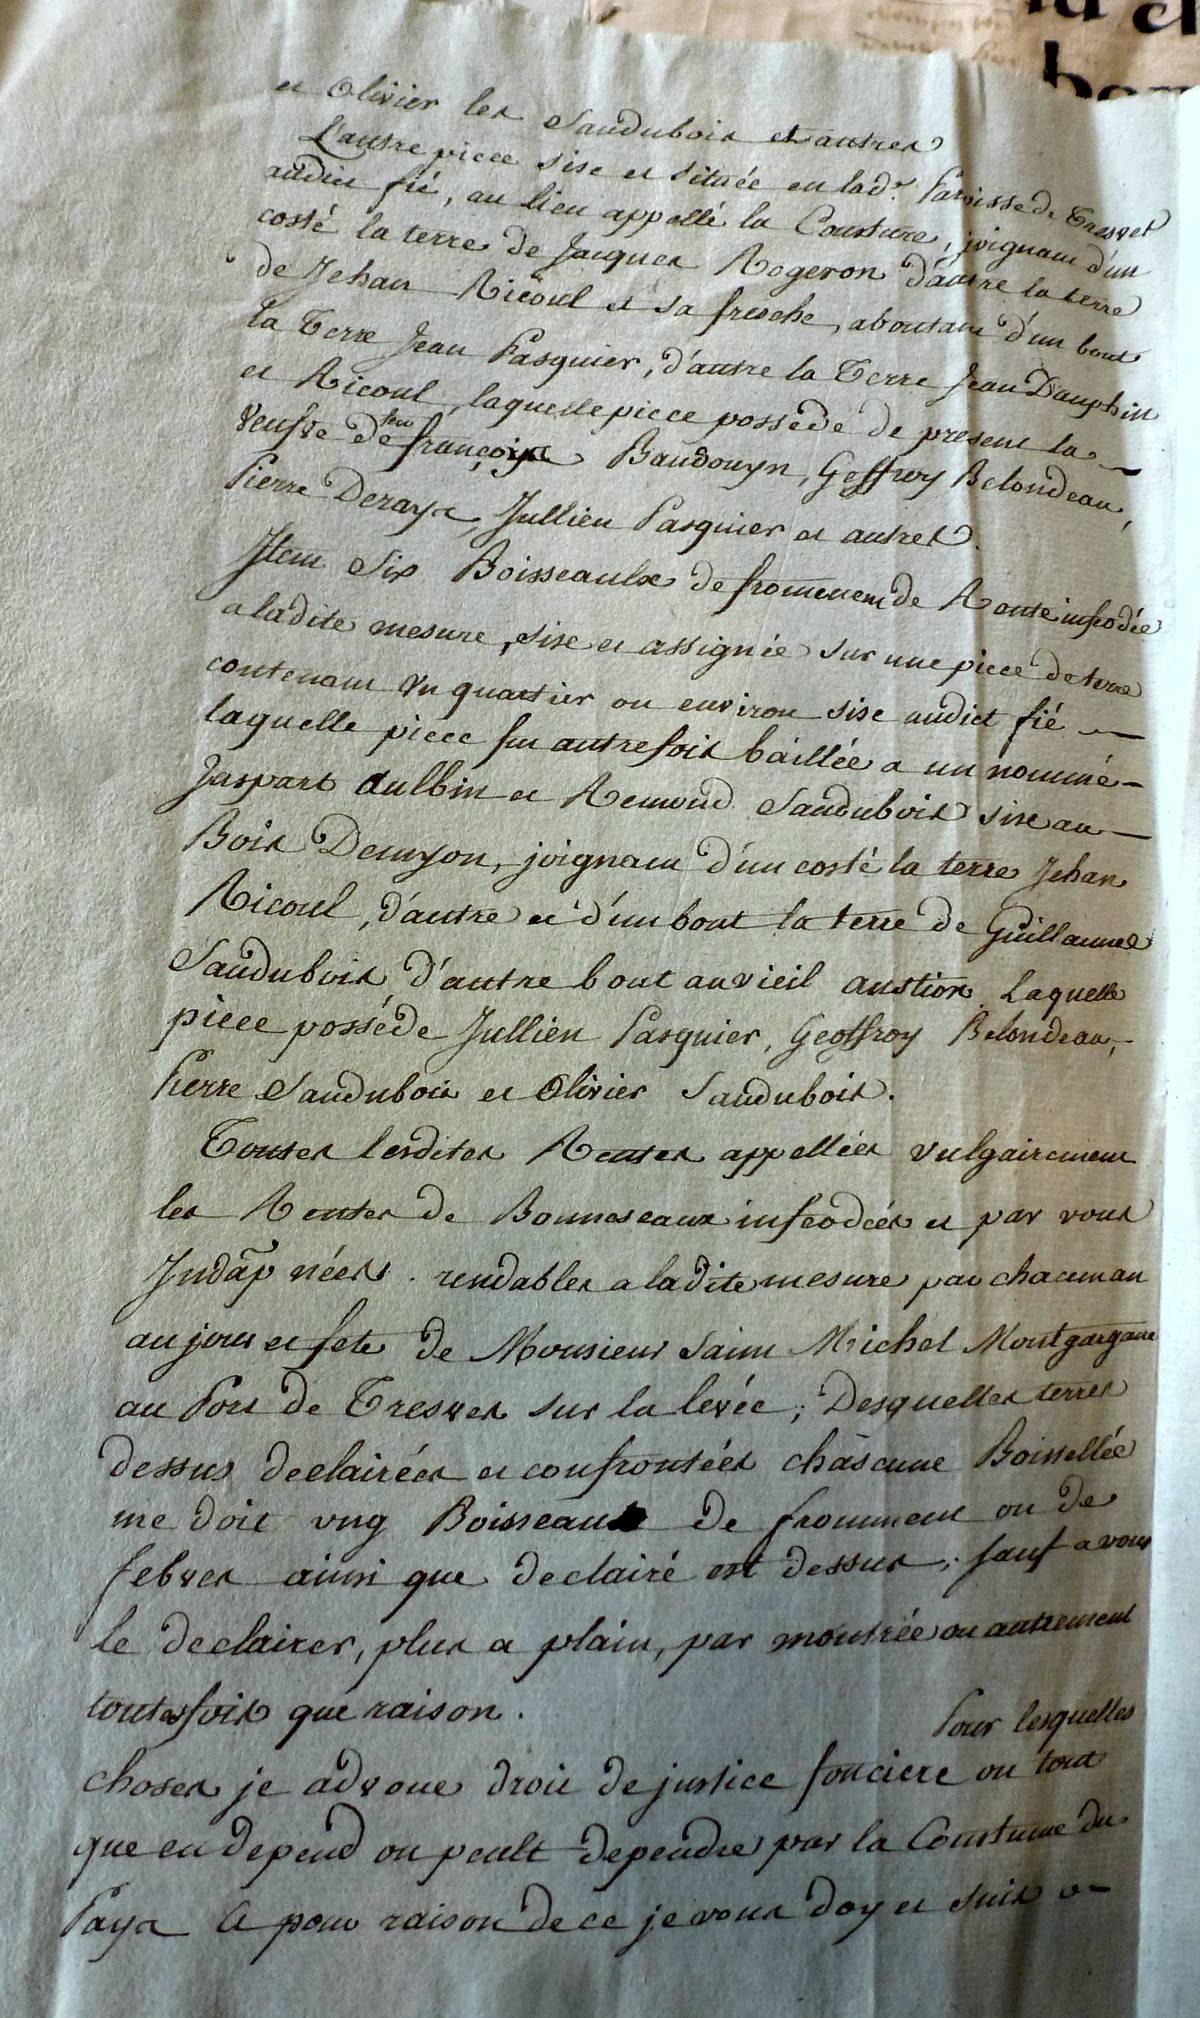 et Olivier les Saudubois et autres
L'autre piece sise et située en lad.e Paroisse de Tresves
audict fié, au lieu appellé la Cousture, joignant d'un
costé la terre de Jacques Rogeron d'autre la terre
de Jehan Ricoul et sa fresche, aboutant d'un bout
la Terre Jean Pasquier, d'autre la Terre Jean Dauphin
et Ricoul, laquelle piece possède de present la
veufve de feu françoys Baudouyn, Geffroy Belondeau,
Pierre Derays, Jullien Pasquier et autres.
Item Six Boisseaulx de fromment de Rente infeodée
a ladite mesure, sise et assignée sur une piece de terre
contenant un quartier ou environ sise audict fié
laquelle piece fut autrefois baillée a un nommé
Jaspart Aulbin et Remond Saudubois sise au
Bois Denyon, joignant d'un costé la terre Jehan
Ricoul, d'autre et d'un bout la terre de Guillaume
Saudubois d'autre bout au vieil austion Laquelle
piece posséde Jullien Pasquier, Geoffroy Belondeau,
Pierre Saudubois et Olivier Saudubois.
Toutes lesdites Rentes appellées vulgairement
les Rentes de Bonneseaux infeodées et par vous
Indãp nées. rendables a ladite mesure par chacun an
au jour et fete de Monsieur Saint Michel Montgargane
au Port de Tresves sur la levée; Desquelles terres
dessus declairées et confrontées chascune Boissellée
me doit ung Boisseau de fromment ou de
febves ainsi que declairé est dessus; sauf a vous
le declairer, plus a plain, par montrée ou autrement
toutesfois que raison.
Pour lesquelles
choses je advoue droit de justice fonciere ou tout
que en depend ou peult dependre par la Coustume du
Pays Et pour raison de ce je vous doy et suis